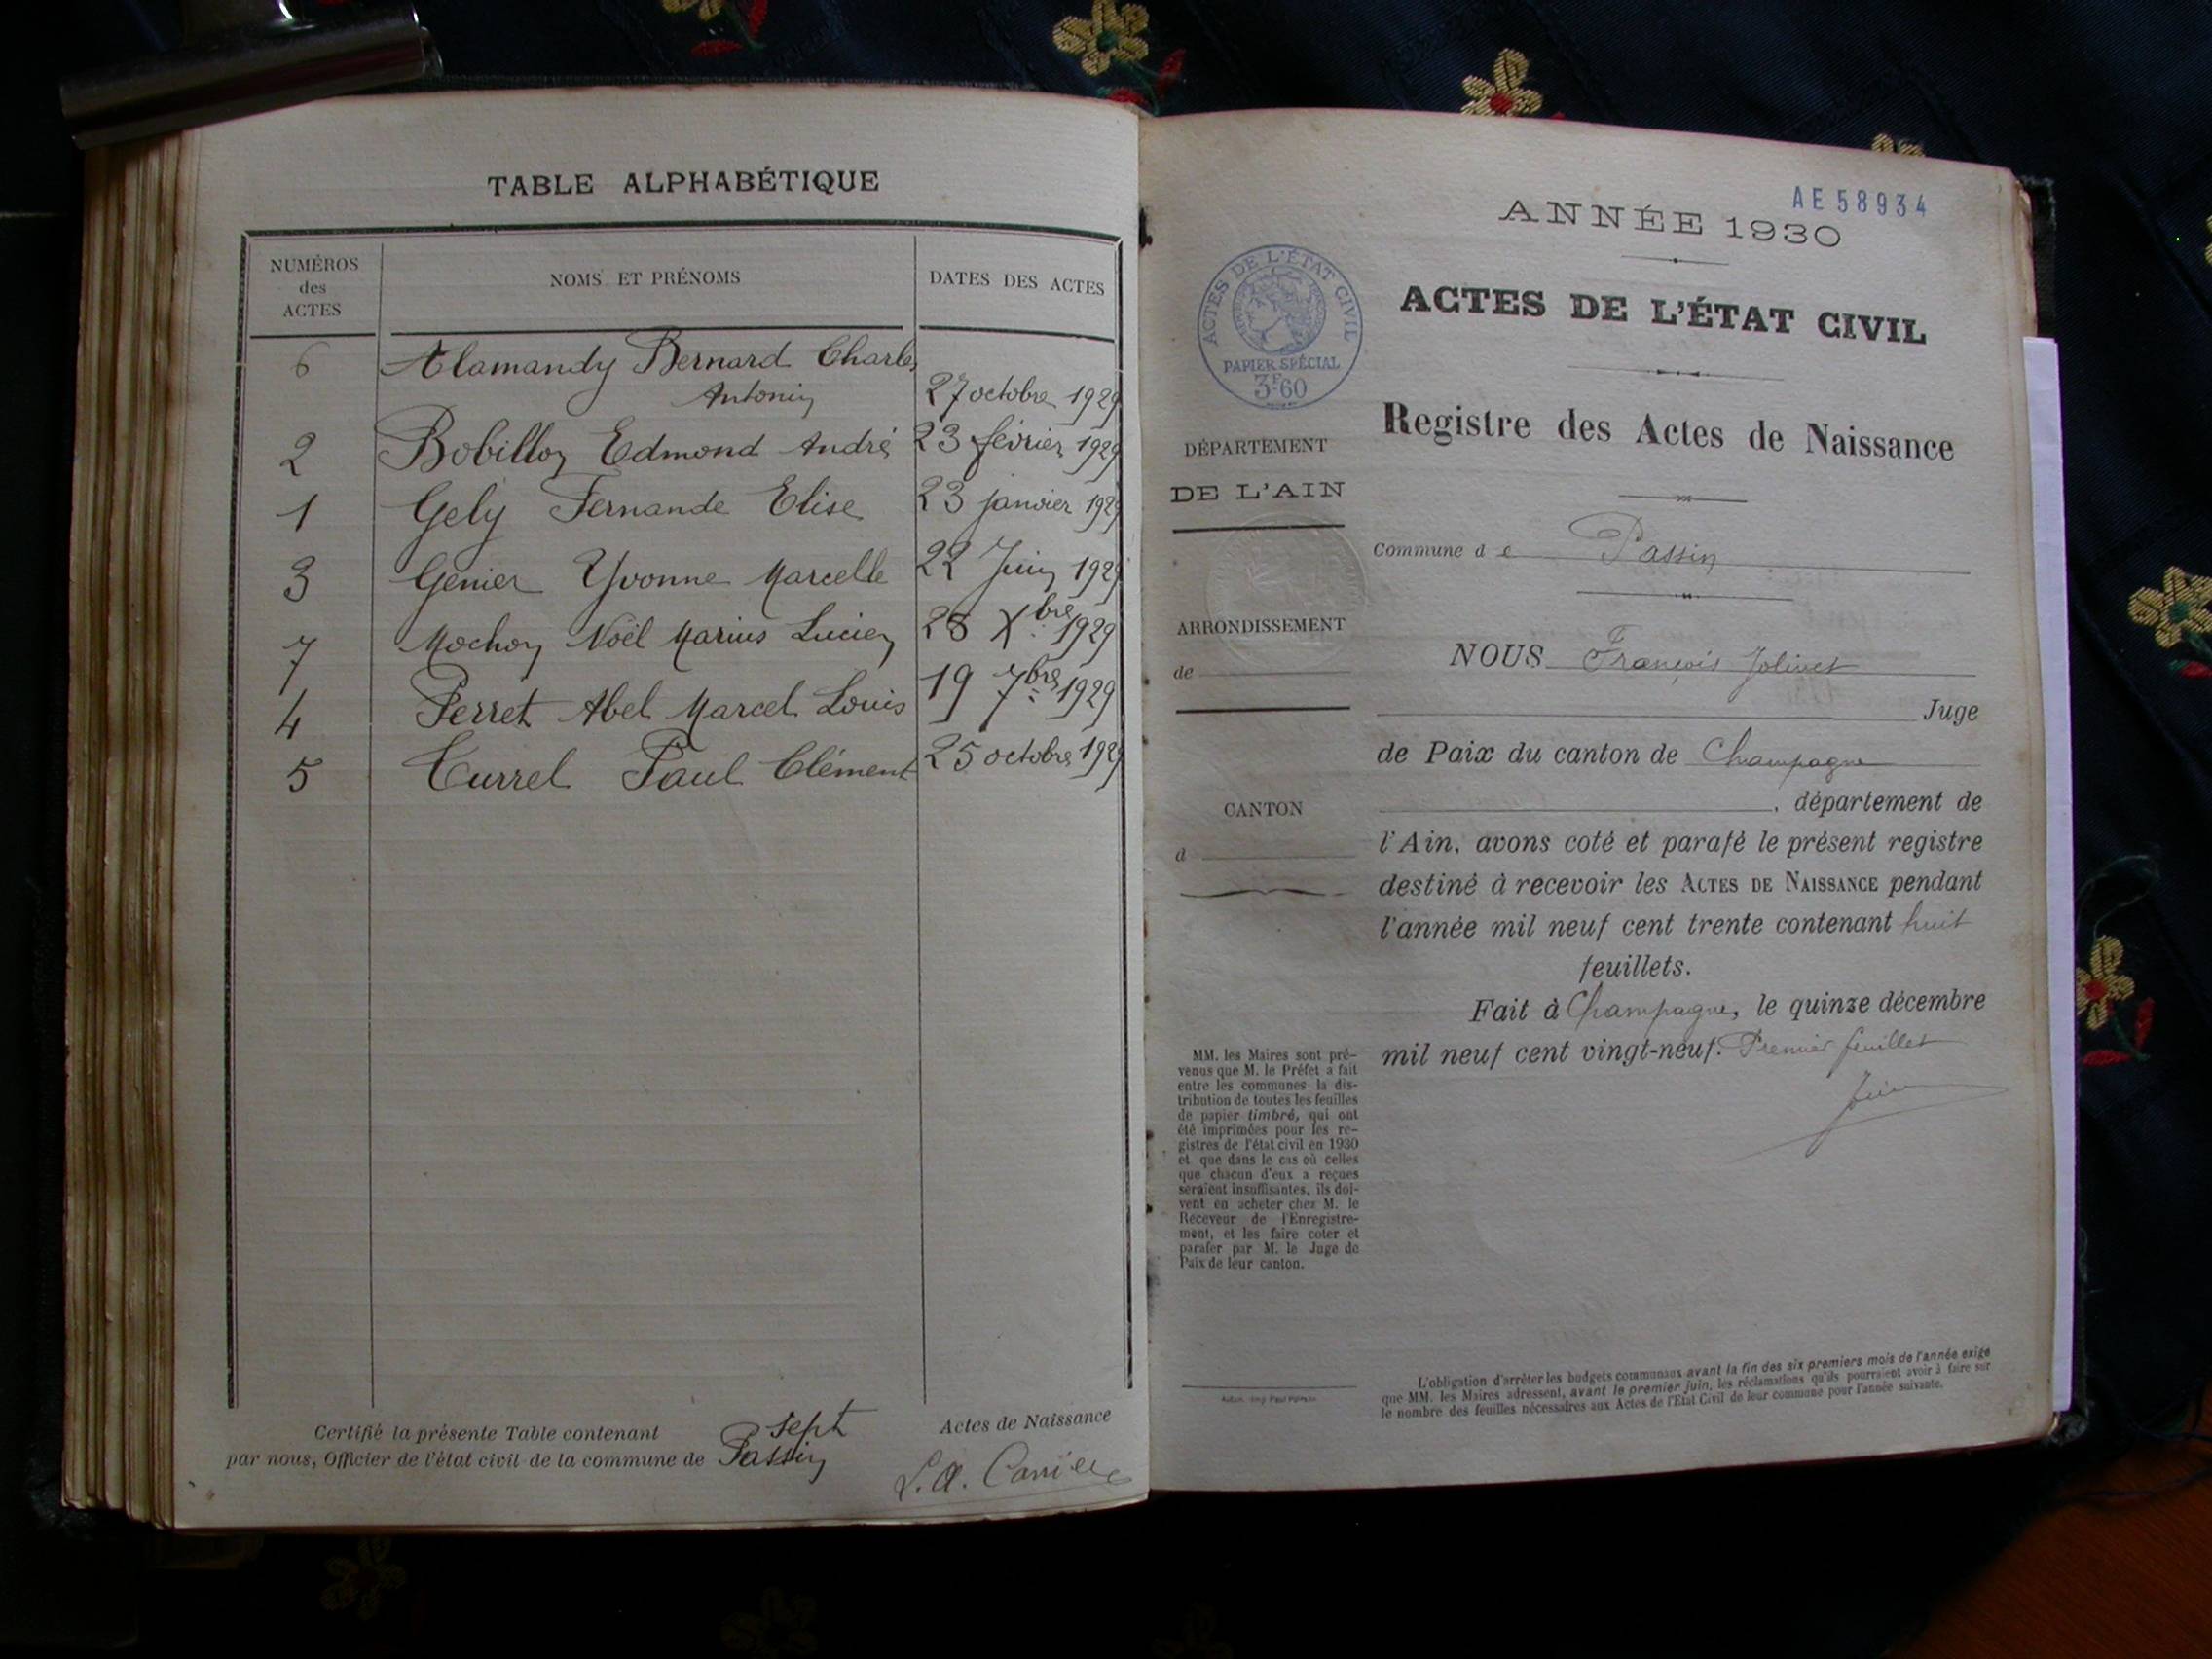 TABLE ALPHABÉTIQUE
NUMÉROS
des
ACTES
NOMS ET PRÉNOMS
DATES DES ACTES
6 Alamandy Bernard Charles
Antonin 27 octobre 1929
2 Bobillon Edmond André 23 février 1929
1 Gely Fernande Elise 23 janvier 1929
3 Genier Yvonne Marcelle 22 Juin 1929
7 Mochon Noël Marius Lucien 28 Xbre 1929
4 Perret Abel Marcel Louis 19 7bre 1929
5 Turrel Paul Clément 25 octobre 1929
Certifié la présente Table contenant sept Actes de Naissance
par nous, Officier de l'état civil de la commune de Passin
AE 58934
ANNÉE 1930
ACTES DE L'ÉTAT CIVIL
PAPIER SPÉCIAL
3F60
ACTES DE L'ÉTAT CIVIL
Registre des Actes de Naissance
DÉPARTEMENT
DE L'AIN
Commune de Passin
ARRONDISSEMENT
de
NOUS François Jolivet
Juge
de Paix du canton de Champagne
CANTON
d
, département de
l'Ain, avons coté et parafé le présent registre
destiné à recevoir les ACTES DE NAISSANCE pendant
l'année mil neuf cent trente contenant huit
feuillets.
Fait à Champagne, le quinze décembre
mil neuf cent vingt-neuf. Premier feuillet
MM. les Maires sont pré-
venus que M. le Préfet a fait
entre les communes la dis-
tribution de toutes les feuilles
de papier timbré, qui ont
été imprimées pour les re-
gistres de l'état civil en 1930
et que dans le cas où celles
que chacun d'eux a reçues
seraient insuffisantes, ils doi-
vent en acheter chez M. le
Receveur de l'Enregistre-
ment, et les faire coter et
parafer par M. le Juge de
Paix de leur canton.
L'obligation d'arrêter les budgets communaux avant la fin des six premiers mois de l'année exige
que MM. les Maires adressent, avant le premier juin, les réclamations qu'ils pourraient avoir à faire sur
le nombre des feuilles nécessaires aux Actes de l'Etat Civil de leur commune pour l'année suivante.